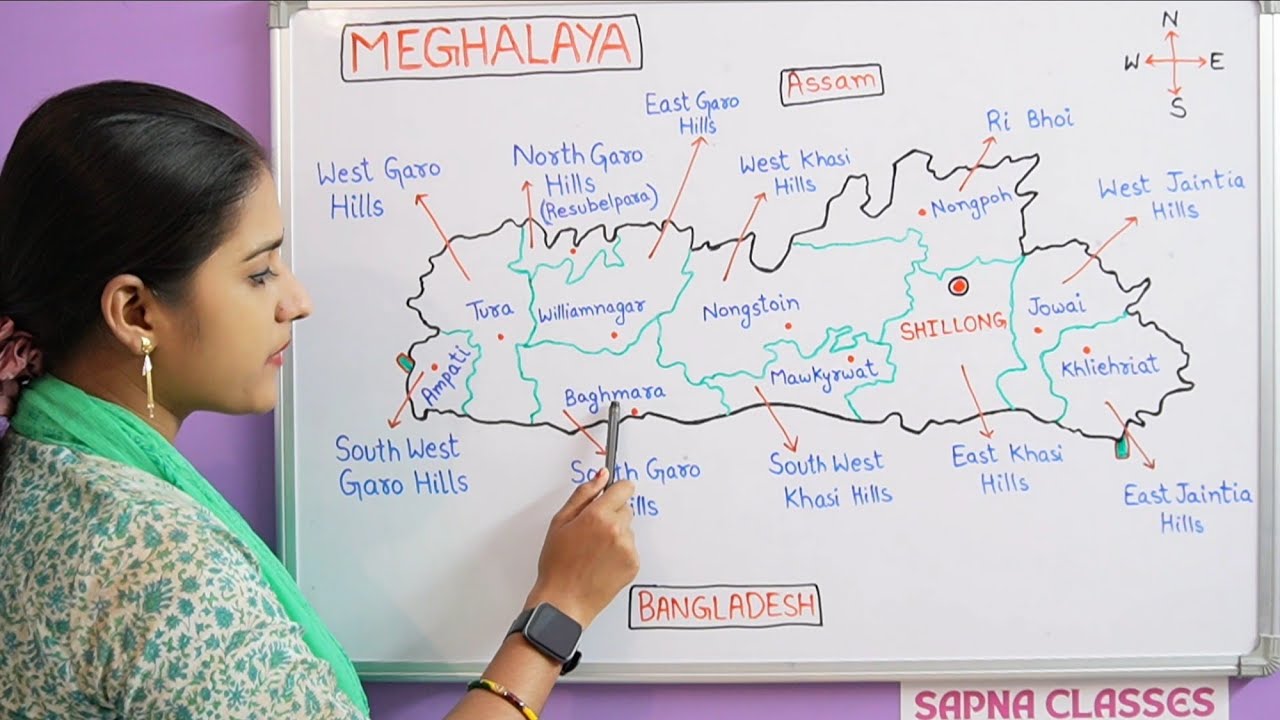 MEGHALAYA
N
W E
S
Assam
East Garo
Hills
Ri Bhoi
West Garo
Hills
North Garo
Hills
(Resubelpara)
West Khasi
Hills
West Jaintia
Hills
Nongpoh
Tura
Williamnagar
Nongstoin
SHILLONG
Jowai
Ampati
Baghmara
Mawkyrwat
Khliehriat
South West
Garo Hills
South Garo
Hills
South West
Khasi Hills
East Khasi
Hills
East Jaintia
Hills
BANGLADESH
SAPNA CLASSES